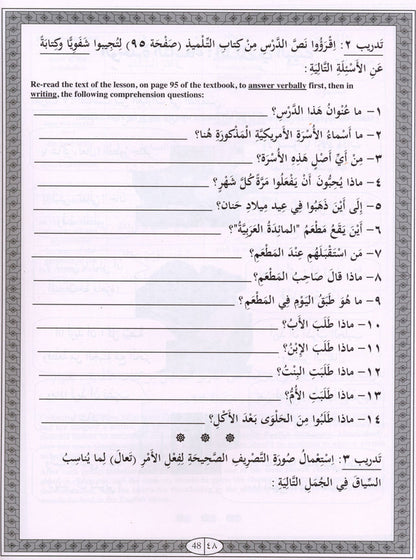 تَدريب ٢: اِقرَؤُوا نَصَّ الدَّرْسِ مِنْ كِتابِ التِّلْميذِ (صَفْحَة ٩٥) لِتُجيبوا شَفَوِيًّا وكِتابَةً
عَنِ الأَسْئِلَةِ التَّالِيَةِ :
Re-read the text of the lesson, on page 95 of the textbook, to answer verbally first, then in
writing, the following comprehension questions:
١- ما عُنْوانُ هَذا الدَّرْسِ؟
٢- ما أَسْماءُ الأُسْرَةِ الأَمريكِيَّةِ المَذْكورَةِ هُنا؟
٣- مِنْ أَيِّ أَصْلٍ هَذِهِ الأُسْرَة؟
٤- ماذا يُحِبُّونَ أَنْ يَفْعَلُوا مَرَّةً كُلَّ شَهْرٍ؟
٥- إِلَى أَيْنَ ذَهَبُوا فِي عِيدِ مِيلادِ حَنان؟
٦- أَيْنَ يَقَعُ مَطْعَمُ "المائِدَةُ العَرَبِيَّةُ"؟
٧- مَن اسْتَقْبَلَهُم عِنْدَ المَطْعَمِ؟
٨- ماذا قالَ صَاحِبُ المَطْعَمِ؟
٩- ما هُوَ طَبَقُ اليَوْمِ فِي المَطْعَمِ؟
١٠- ماذا طَلَبَ الأَبُ؟
١١- ماذا طَلَبَ الإِبْنُ؟
١٢- ماذا طَلَبَتِ البِنْتُ؟
١٣- ماذا طَلَبَتِ الأُمُّ؟
١٤- ماذا طَلَبُوا مِنَ الحَلْوَى بَعْدَ الأَكْلِ؟
تَدريب ٣: اِسْتِعْمالُ صُورَةِ التَّصْريفِ الصَّحِيحَةِ لِفِعْلِ الأَمْرِ (تَعالَ) لِما يُناسِبُ
السِّياقَ فِي الجُمَلِ التَّالِيَةِ :
48 ٤٨